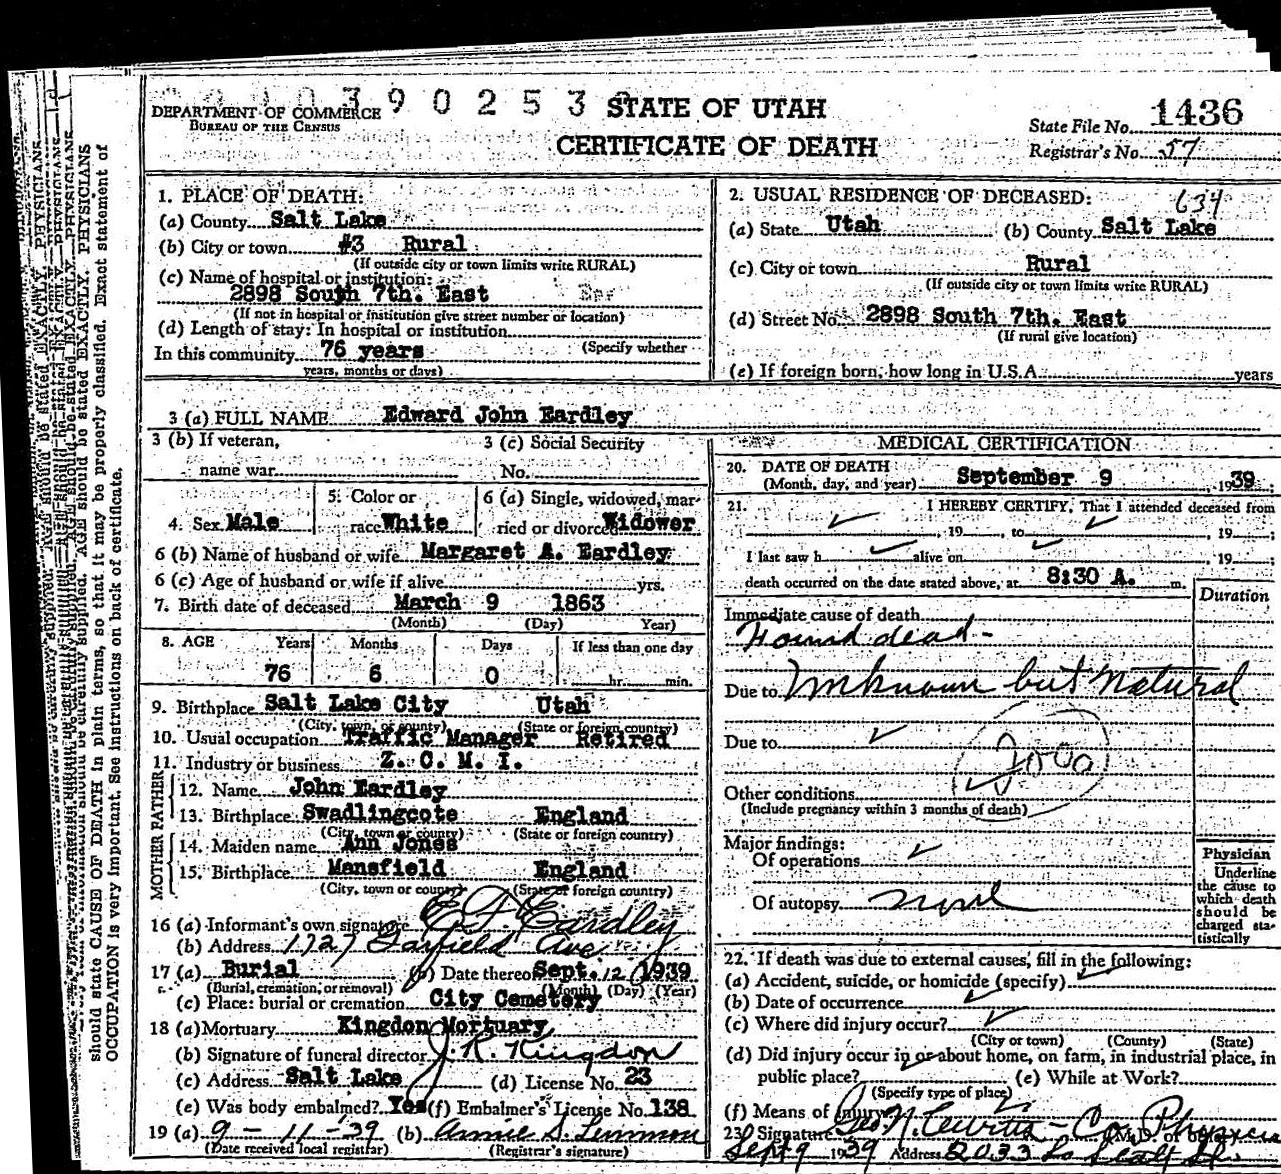 DEPARTMENT OF COMMERCE
BUREAU OF THE CENSUS
STATE OF UTAH
CERTIFICATE OF DEATH
State File No. 1436
Registrar's No. 57
1. PLACE OF DEATH:
(a) County Salt Lake
(b) City or town #3 Rural
(If outside city or town limits write RURAL)
(c) Name of hospital or institution:
2898 South 7th. East
(If not in hospital or institution give street number or location)
(d) Length of stay: In hospital or institution
(Specify whether
In this community 76 years
years, months or days)
2. USUAL RESIDENCE OF DECEASED:
634
(a) State Utah (b) County Salt Lake
(c) City or town Rural
(If outside city or town limits write RURAL)
(d) Street No. 2898 South 7th. East
(If rural give location)
(e) If foreign born, how long in U.S.A. years
3 (a) FULL NAME Edward John Eardley
3 (b) If veteran,
name war
3 (c) Social Security
No.
4. Sex Male
5. Color or
race White
6 (a) Single, widowed, mar-
ried or divorced Widower
6 (b) Name of husband or wife Margaret A. Eardley
6 (c) Age of husband or wife if alive yrs.
7. Birth date of deceased March 9 1863
(Month) (Day) Year)
8. AGE Years Months Days If less than one day
76 6 0 hr. min.
9. Birthplace Salt Lake City Utah
(City, town, or county) (State or foreign country)
10. Usual occupation Traffic Manager Retired
11. Industry or business Z. C. M. I.
FATHER
12. Name John Eardley
13. Birthplace Swadlingcote England
(City, town or county) (State or foreign country)
MOTHER
14. Maiden name Ann Jones
15. Birthplace Mansfield England
(City, town or county) (State or foreign country)
16 (a) Informant's own signature Eardley
(b) Address 1727 Ave
17 (a) Burial (b) Date thereof Sept. 12 1939
(Burial, cremation, or removal) (Month) (Day) (Year)
(c) Place: burial or cremation City Cemetery
18 (a) Mortuary Kingdon Mortuary
(b) Signature of funeral director J. R. Kingdon
(c) Address Salt Lake (d) License No. 23
(e) Was body embalmed? Yes (f) Embalmer's License No. 138
19 (a) 9-11-39 (b) Annie S. Lemmon
(Date received local registrar) (Registrar's signature)
MEDICAL CERTIFICATION
20. DATE OF DEATH
(Month, day, and year) September 9, 1939
21. I HEREBY CERTIFY, That I attended deceased from
, 19 , to , 19 ;
I last saw h alive on , 19 ;
death occurred on the date stated above, at 8:30 A. m.
Duration
Immediate cause of death
Found dead -
Due to Unknown but Natural
Due to
Other conditions
(Include pregnancy within 3 months of death)
Major findings:
Of operations
Of autopsy none
Physician
Underline
the cause to
which death
should be
charged sta-
tistically
22. If death was due to external causes, fill in the following:
(a) Accident, suicide, or homicide (specify)
(b) Date of occurrence
(c) Where did injury occur?
(City or town) (County) (State)
(d) Did injury occur in or about home, on farm, in industrial place, in
public place? (e) While at Work?
(Specify type of place)
(f) Means of injury
23. Signature M.D. or
Sept 9 1939 Address 2033 So
should state CAUSE OF DEATH in plain terms, so that it may be properly classified. Exact statement of
OCCUPATION is very important. See instructions on back of certificate.